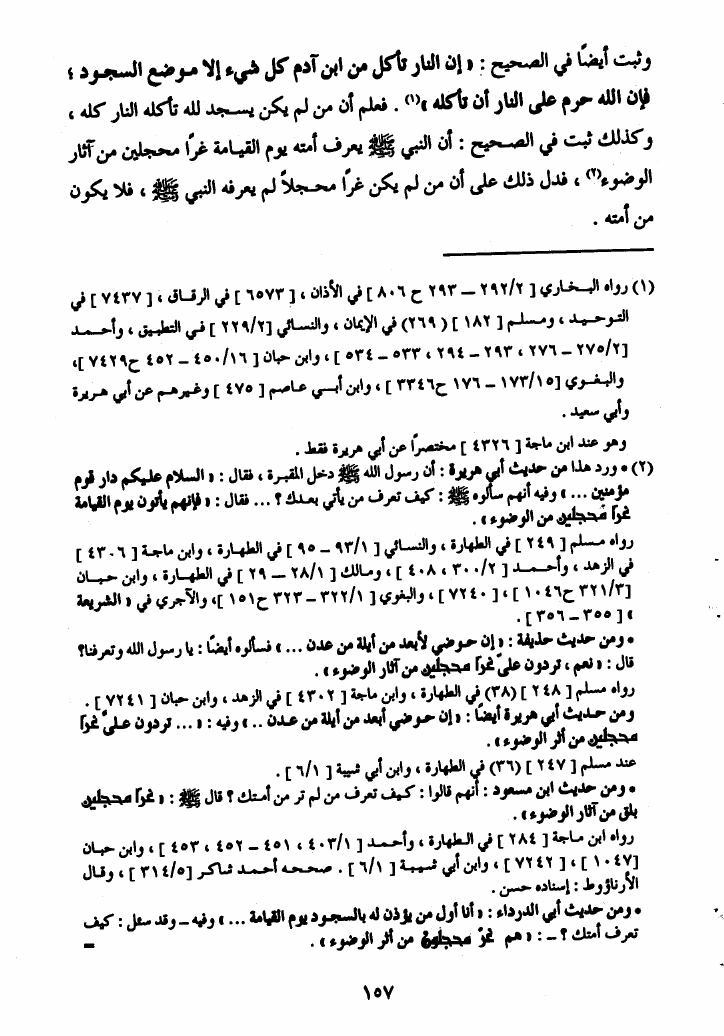 وثبت أيضًا في الصحيح : « إن النار تأكل من ابن آدم كل شيء إلا موضع السجود ؛
فإن الله حرم على النار أن تأكله »(١) . فعلم أن من لم يكن يسجد لله تأكله النار كله ،
وكذلك ثبت في الصحيح : أن النبي ﷺ يعرف أمته يوم القيامة غرًا محجلين من آثار
الوضوء(٢) ، فدل ذلك على أن من لم يكن غرًا محجلاً لم يعرفه النبي ﷺ ، فلا يكون
من أمته .
(١) رواه البخاري [ ٢٩٢/٢ – ٢٩٣ ح ٨٠٦ ] في الأذان ، [ ٦٥٧٣ ] في الرقاق ، [ ٧٤٣٧ ] في
التوحيد ، ومسلم [ ١٨٢ ] ( ٢٦٩) في الإيمان ، والنسائي [٢٢٩/٢ ] في التطبيق ، وأحمد
[٢٧٥/٢ – ٢٧٦ ، ٢٩٣ – ٢٩٤ ، ٥٣٣ – ٥٣٤ ] ، وابن حبان [ ٤٥٠/١٦ – ٤٥٢ ح٧٤٢٩ ]،
والبغوي [١٧٣/١٥ – ١٧٦ ح٣٣٤٦ ] ، وابن أبي عاصم [ ٤٧٥ ] وغيرهم عن أبي هريرة
وأبي سعيد .
وهو عند ابن ماجة [ ٤٣٢٦ ] مختصراً عن أبي هريرة فقط .
(٢) • ورد هذا من حديث أبي هريرة : أن رسول الله ﷺ دخل المقبرة ، فقال : « السلام عليكم دار قوم
مؤمنين ... » وفيه أنهم سألوه ﷺ : كيف تعرف من يأتي بعدك ؟ ... فقال : « فإنهم يأتون يوم القيامة
غرًا محجلين من الوضوء» .
رواه مسلم [ ٢٤٩ ] في الطهارة ، والنسائي [ ٩٣/١ – ٩٥ ] في الطهارة ، وابن ماجة [ ٤٣٠٦ ]
في الزهد ، وأحمد [ ٣٠٠/٢ ، ٤٠٨ ] ، ومالك [ ٢٨/١ – ٢٩ ] في الطهارة ، وابن حبان
[٣٢١/٣ ح١٠٤٦ ] ، [ ٧٢٤٠ ] ، والبغوي [ ٣٢٢/١ – ٣٢٣ ح١٥١ ]، والآجري في « الشريعة
» [ ٣٥٥ – ٣٥٦ ] .
• ومن حديث حذيفة : « إن حوضي لأبعد من أيلة من عدن ... » فسألوه أيضًا : يا رسول الله وتعرفنا؟
قال : « نعم ، تردون عليّ غرًا محجلين من آثار الوضوء» .
رواه مسلم [ ٢٤٨ ] (٣٨) في الطهارة ، وابن ماجة [ ٤٣٠٢ ] في الزهد ، وابن حبان [ ٧٢٤١ ] .
ومن حديث أبي هريرة أيضًا : « إن حوضي أبعد من أيلة من عدن .. » وفيه : « ... تردون عليّ غرًا
محجلين من أثر الوضوء» .
عند مسلم [ ٢٤٧ ] (٣٦) في الطهارة ، وابن أبي شيبة [ ٦/١ ] .
• ومن حديث ابن مسعود : أنهم قالوا : كيف تعرف من لم تر من أمتك ؟ قال ﷺ : « غرًا محجلين
بلق من آثار الوضوء» .
رواه ابن ماجة [ ٢٨٤ ] في الطهارة ، وأحمد [ ٤٠٣/١ ، ٤٥١ – ٤٥٢ ، ٤٥٣ ] ، وابن حبان
[١٠٤٧ ] ، [ ٧٢٤٢ ] ، وابن أبي شيبة [ ٦/١ ] . صححه أحمد شاكر [٣١٤/٥ ] ، وقال
الأرناؤوط : إسناده حسن .
• ومن حديث أبي الدرداء : « أنا أول من يؤذن له بالسجود يوم القيامة ... » وفيه – وقد سئل : كيف
تعرف أمتك ؟ – : « هم غرّ محجلون من أثر الوضوء » . =
١٥٧